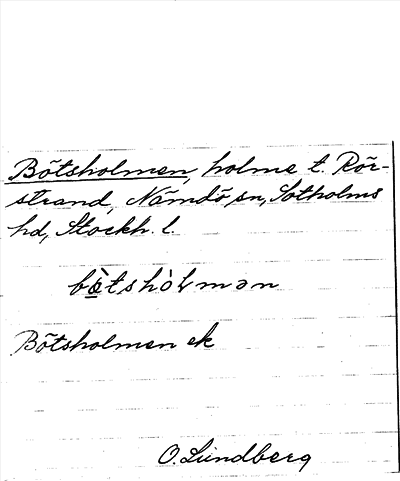 Bötsholmen, holme t. Rör-
strand, Nämdö sn, Sotholms
hd, Stockh. l.
bö̀tshòlmən
Bötsholmen ek
O. Lundberg